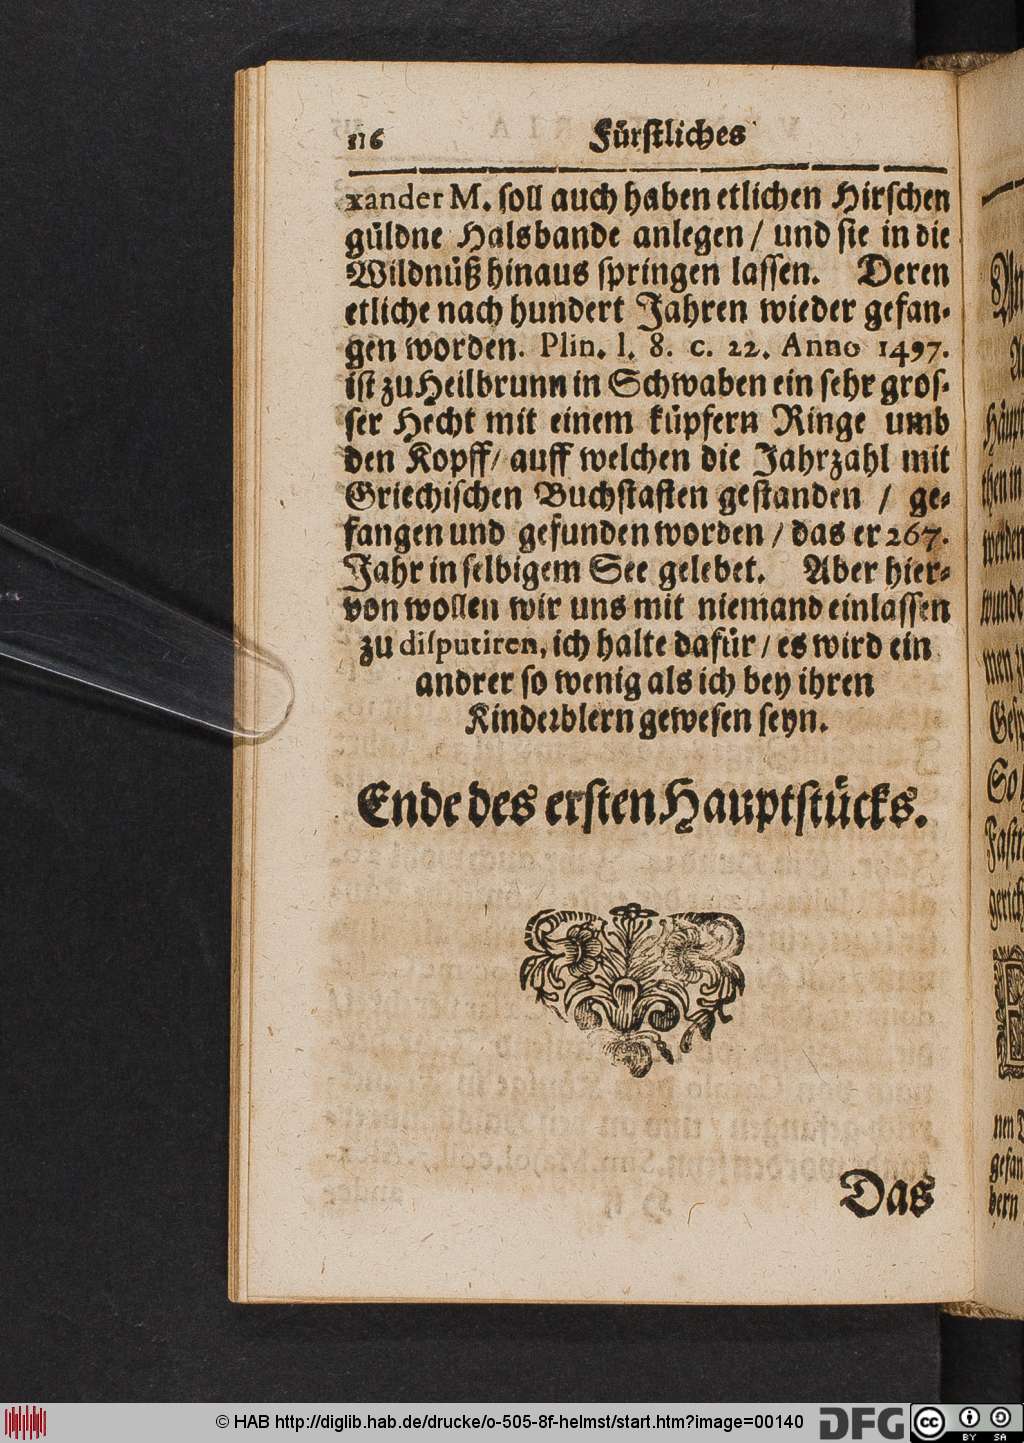 116 Fürstliches
xander M. soll auch haben etlichen Hirschen
güldne Halsbande anlegen / und sie in die
Wildnüß hinaus springen lassen. Deren
etliche nach hundert Jahren wieder gefan-
gen worden. Plin. l. 8. c. 22. Anno 1497.
ist zu Heilbrunn in Schwaben ein sehr gros-
ser Hecht mit einem küpfern Ringe umb
den Kopff / auff welchen die Jahrzahl mit
Griechischen Buchstasten gestanden / ge-
fangen und gefunden worden / das er 267.
Jahr in selbigem See gelebet. Aber hier-
von wollen wir uns mit niemand einlassen
zu disputiren, ich halte dafür / es wird ein
andrer so wenig als ich bey ihren
Kinderblern gewesen seyn.
Ende des ersten Hauptstücks.
Das
© HAB http://diglib.hab.de/drucke/o-505-8f-helmst/start.htm?image=00140
DFG
cc
BY SA